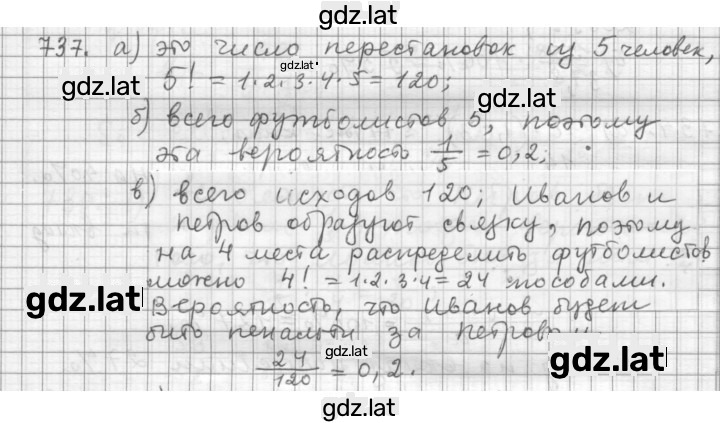 gdz.lat
737. а) это число перестановок из 5 человек,
gdz.lat
5! = 1·2·3·4·5 = 120;
gdz.lat
gdz.lat
б) всего футболистов 5, поэтому
эта вероятность 1/5 = 0,2;
в) всего исходов 120; Иванов и
Петров образуют связку, поэтому
на 4 места распределить футболистов
можно 4! = 1·2·3·4 = 24 способами.
gdz.lat
Вероятность, что Иванов будет
бить пенальти за
gdz.lat
gdz.lat
24/120 = 0,2.
gdz.lat